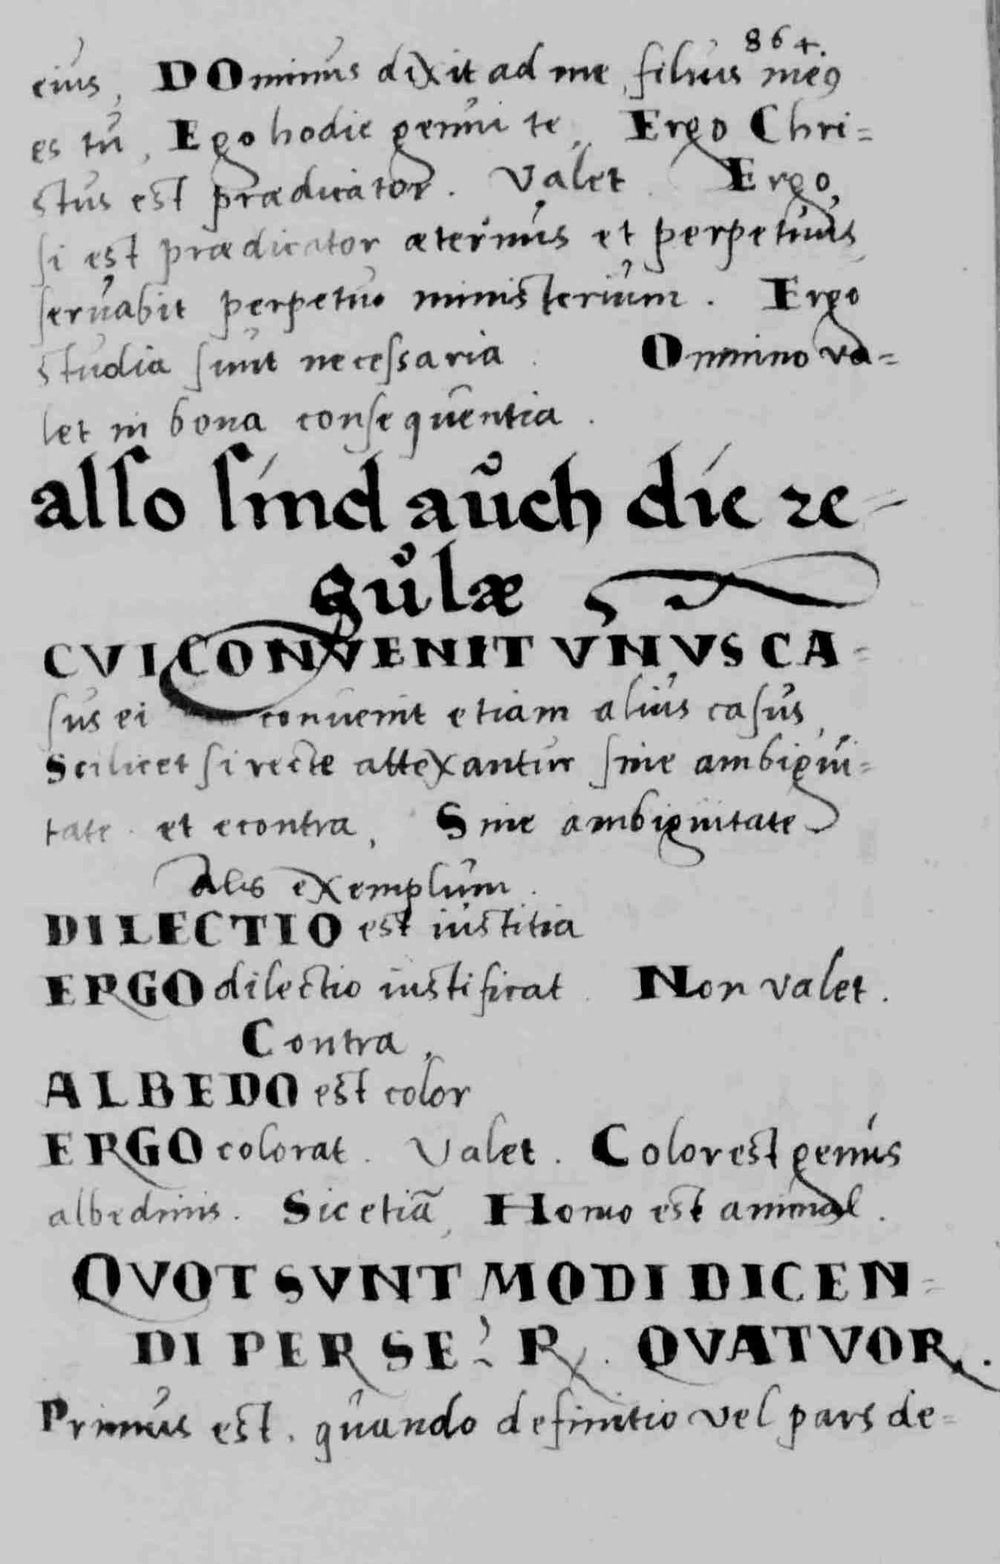 864.
eius, DOminus dixit ad me, filius meus
es tu, Ego hodie genui te, Ergo Chri=
stus est prædicator. Valet. Ergo
si est prædicator æternus et perpetuus
seruabit perpetuo ministerium. Ergo
studia sunt necessaria. Omnino va=
let in bona consequentia.
also sind auch die re=
gulæ
CVI CONVENIT VNVS CA=
sus ei conuenit etiam alius casus,
Scilicet si recte attexantur sine ambigui=
tate et econtra, Sine ambiguitate
Alis exemplum.
DILECTIO est iustitia
ERGO dilectio iustificat. Non valet.
Contra,
ALBEDO est color
ERGO colorat. Valet. Color est genus
albedinis. Sic etiā, Homo est animal.
QVOT SVNT MODI DICEN=
DI PER SE? R. QVATVOR.
Primus est, quando definitio vel pars de=